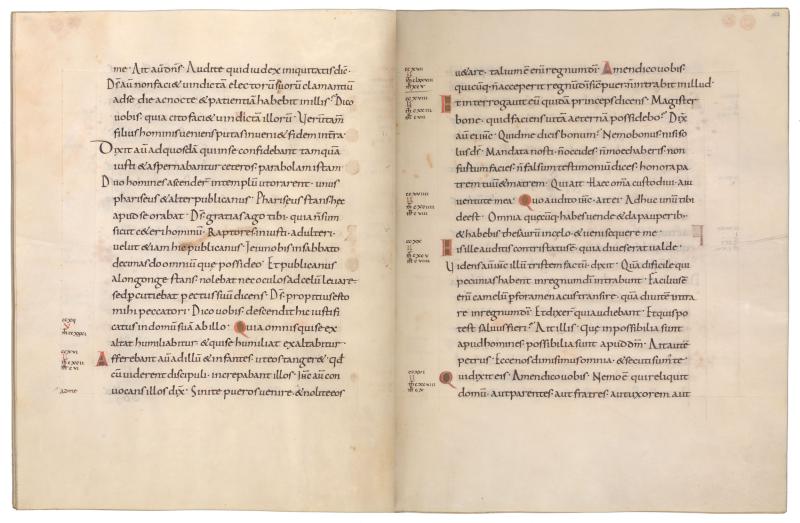 me. Ait aū dn̄s. Audite quid iudex iniquitatis dic̄.
Dn̄s aū non faci& uindictā electorū suorū clamantiū
ad se die ac nocte & patientiā habebit in illis. Dico
uobis. quia cito faci& uindictā illorū. Verūtam̄
filius hominis ueniens putas inueni& fidem in tr̄a.
Dixit aū ad quosdā qui in se confidebant tamquā
iusti & aspernabantur ceteros. parabolam istam.
Duo homines ascender̄ in templū ut orarent. unus
phariseus & alter publicanus. Phariseus stans hec
apud se orabat. Ds̄ gratias ago tibi. quia n̄ sum
sicut ceteri hominū. Raptores. iniusti. adulteri.
uelut & iam hic publicanus. Ieiuno bis in sabbato.
decimas do omniū que possideo. Et publicanus
a longe stans. nolebat nec oculos ad celū leuare.
sed pcutiebat pectus suū dicens. Ds̄ propitius esto
mihi peccatori. Dico uobis. descendit hic iustifi
catus in domū suā ab illo. Quia omnis qui se ex
altat humiliabitur. & qui se humiliat exaltabitur.
Afferebant aū ad illū & infantes. ut eos tanger&. qd̄
cū uiderent discipuli. increpabant illos. Ihc̄ aū con
uocans illos dix̄. Sinite pueros uenire. & nolite eos
uetare. talium ē enī regnum dī. Amen dico uobis.
quicūq; n̄ acceperit regnū dī sic̄ puer. n̄ intrabit in illud.
Et interrogauit eū quidā princeps dicens. Magister
bone. quid faciens uitā aeternā possidebo. Dix̄
aū ei ihc̄. Quid me dicis bonum. Nemo bonus nisi so
lus ds̄. Mandata nosti. n̄ occides. n̄ moechaberis. non
furtum facies. n̄ falsum testimoniū dices. honora pa
trem tuū & matrem. Qui ait. Haec om̄a custodiui. a iu
uentute mea. Quo audito ihc̄. ait ei. Adhuc unū tibi
deest. Omnia quecūq; habes uende & da pauperib;.
& habebis thesaurū in celo. & ueni sequere me.
His ille auditis contristatus ē. quia diues erat ualde.
Videns aū ihc̄ illū tristem factū. dixit. Quā difficile qui
pecunias habent in regnum dī intrabunt. Facilius ē
enī camelū p foramen acus transire. quā diuitē intra
re in regnum dī. Et dixer̄ qui audiebant. Et quis po
test saluus fieri. Ait illis. Que impossibilia sunt
apud homines. possibilia sunt apud dm̄. Ait aū
petrus. Ecce nos dimisimus omnia. & secuti sum; te.
Qui dixit eis. Amen dico uobis. Nemo ē qui reliquit
domū. aut parentes. aut fratres. aut uxorem. aut